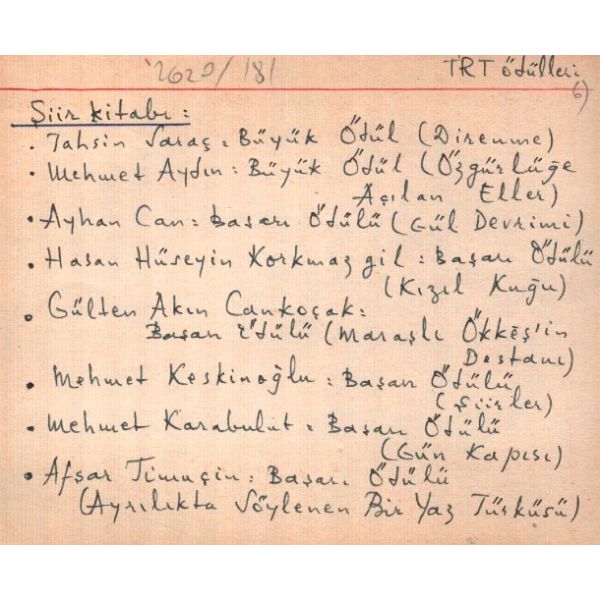 2620/181
TRT ödülleri
6)
Şiir kitabı:
• Tahsin Saraç: Büyük Ödül (Direnme)
• Mehmet Aydın: Büyük Ödül (Özgürlüğe
Açılan Eller)
• Ayhan Can: Başarı Ödülü (Gül Devrimi)
• Hasan Hüseyin Korkmazgil: Başarı Ödülü
(Kızıl Kuğu)
• Gülten Akın Cankoçak:
Başarı Ödülü (Maraşlı Ökkeş'in
Destanı)
• Mehmet Keskinoğlu: Başarı Ödülü
(Şiirler)
• Mehmet Karabulut: Başarı Ödülü
(Gün Kapısı)
• Afşar Timuçin: Başarı Ödülü
(Ayrılıkta Söylenen Bir Yaz Türküsü)